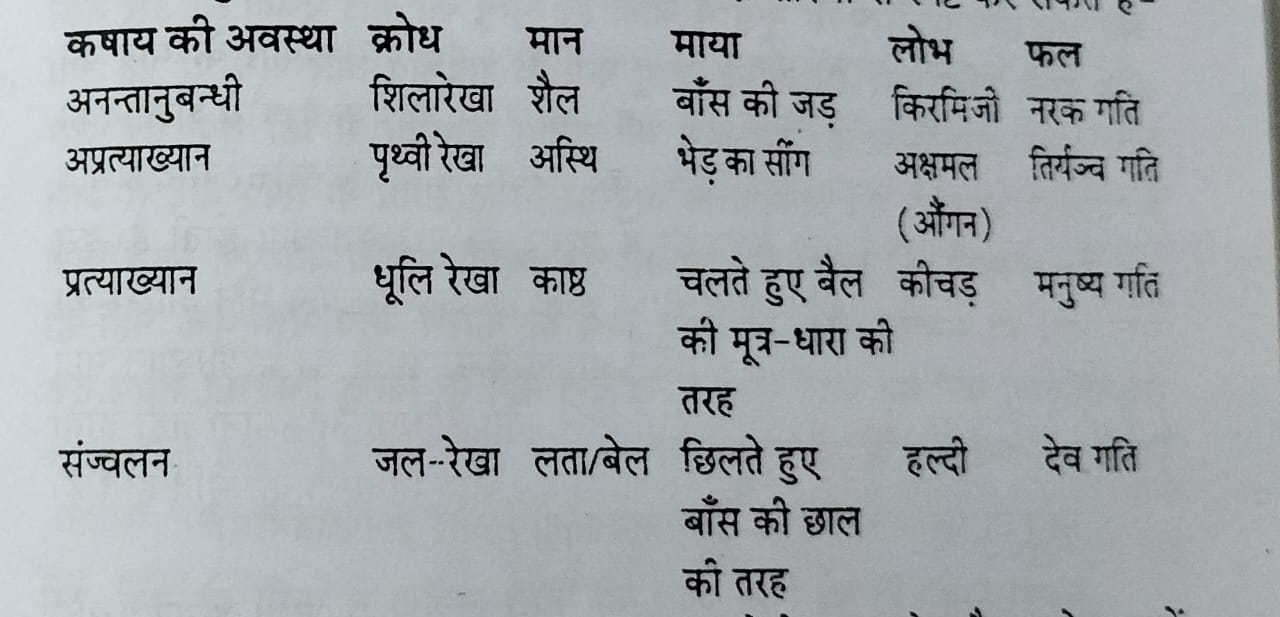 कषाय की अवस्था क्रोध मान माया लोभ फल
अनन्तानुबन्धी शिलारेखा शैल बाँस की जड़ किरमिजी नरक गति
अप्रत्याख्यान पृथ्वी रेखा अस्थि भेड़ का सींग अक्षमल तिर्यञ्च गति
(औंगन)
प्रत्याख्यान धूलि रेखा काष्ठ चलते हुए बैल कीचड़ मनुष्य गति
की मूत्र-धारा की
तरह
संज्वलन जल--रेखा लता/बेल छिलते हुए हल्दी देव गति
बाँस की छाल
की तरह